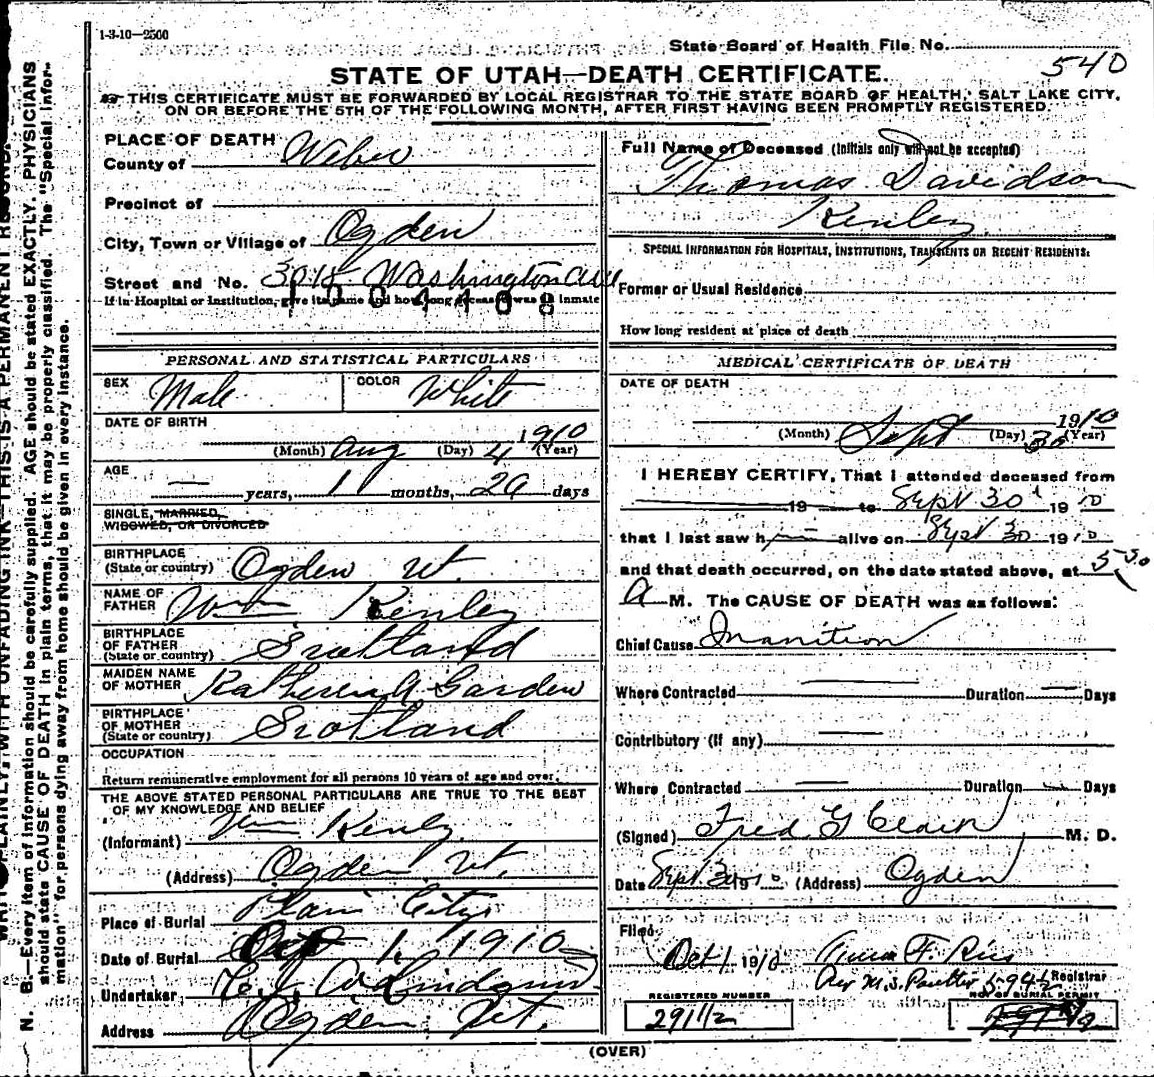 1-3-10—2500
State Board of Health File No. 540
STATE OF UTAH—DEATH CERTIFICATE.
THIS CERTIFICATE MUST BE FORWARDED BY LOCAL REGISTRAR TO THE STATE BOARD OF HEALTH, SALT LAKE CITY,
ON OR BEFORE THE 5TH OF THE FOLLOWING MONTH, AFTER FIRST HAVING BEEN PROMPTLY REGISTERED.
PLACE OF DEATH
County of Weber
Precinct of
City, Town or Village of Ogden
Street and No. Washington ave
If in Hospital or Institution, give its name and how long deceased was an inmate
PERSONAL AND STATISTICAL PARTICULARS
SEX Male COLOR White
DATE OF BIRTH
(Month) Aug (Day) 4 1910 (Year)
AGE
— years, 1 months, days
SINGLE, MARRIED,
WIDOWED, OR DIVORCED
BIRTHPLACE
(State or country) Ogden Ut.
NAME OF
FATHER Wm Kenley
BIRTHPLACE
OF FATHER
(State or country) Scotland
MAIDEN NAME
OF MOTHER Garden
BIRTHPLACE
OF MOTHER
(State or country) Scotland
OCCUPATION
Return remunerative employment for all persons 10 years of age and over.
THE ABOVE STATED PERSONAL PARTICULARS ARE TRUE TO THE BEST
OF MY KNOWLEDGE AND BELIEF
(Informant) Wm Kenley
(Address) Ogden Ut.
Place of Burial Plain City
Date of Burial Oct 1, 1910
Undertaker
Address Ogden Ut.
Full Name of Deceased (Initials only will not be accepted)
Thomas Davidson
Kenley
SPECIAL INFORMATION FOR HOSPITALS, INSTITUTIONS, TRANSIENTS OR RECENT RESIDENTS:
Former or Usual Residence
How long resident at place of death
MEDICAL CERTIFICATE OF DEATH
DATE OF DEATH
(Month) Sept (Day) 30 1910 (Year)
I HEREBY CERTIFY, That I attended deceased from
19 to Sept 30 1910
that I last saw h alive on Sept 30 1910
and that death occurred, on the date stated above, at 5 30
A M. The CAUSE OF DEATH was as follows:
Chief Cause Inanition
Where Contracted — Duration — Days
Contributory (if any) —
Where Contracted — Duration — Days
(Signed) Fred G M. D.
Date Sept 30 1910 (Address) Ogden
Filed
Oct 1 1910
Registrar
REGISTERED NUMBER
NO. OF BURIAL PERMIT
2911½
(OVER)
N. B.—Every item of information should be carefully supplied. AGE should be stated EXACTLY. PHYSICIANS
should state CAUSE OF DEATH in plain terms, that it may be properly classified. The "Special Infor-
mation" for persons dying away from home should be given in every instance.